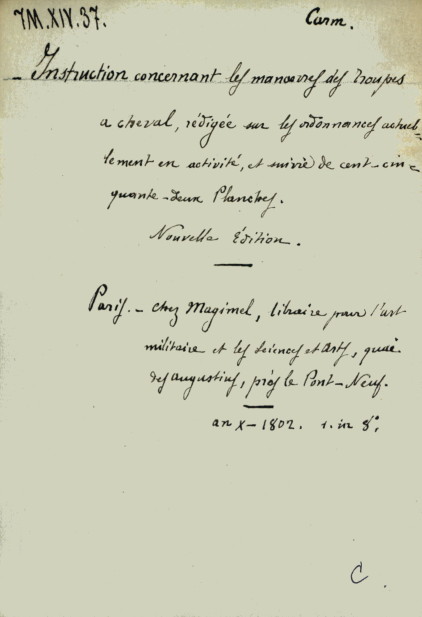 7M.XIV.37.
Carm.
- Instruction concernant les manœuvres des Troupes
a cheval, rédigée sur les ordonnances actuel-
lement en activité, et suivie de cent-cin-
quante-deux Planches.
Nouvelle Édition.
Paris. - chez Magimel, libraire pour l'art
militaire et les sciences et arts, quai
des augustins, près le Pont-Neuf.
an X - 1802. 1. in 8°.
C.